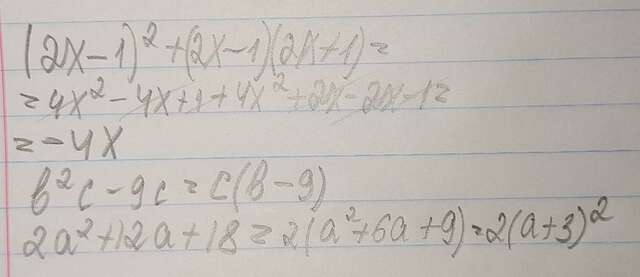 (2x-1)² + (2x-1)(2x+1) =
= 4x² - 4x + 1 + 4x² + 2x - 2x - 1 =
= -4x
b²c - 9c = c(b-9)
2a² + 12a + 18 = 2(a² + 6a + 9) = 2(a+3)²